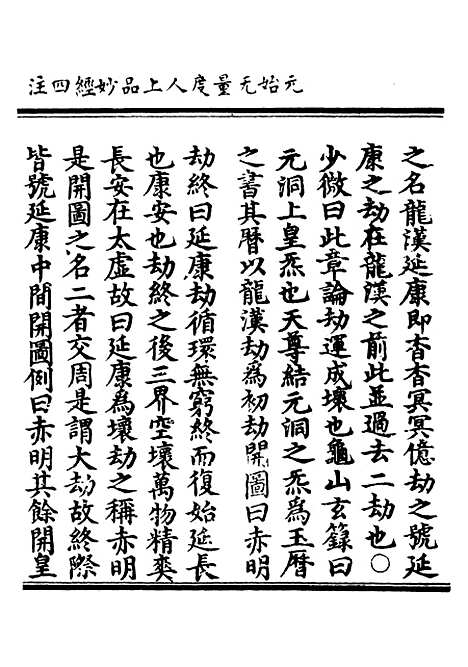 元始无量度人上品妙經四注
之名龍漢延康即杳杳冥冥億劫之號延
康之劫在龍漢之前此並過去二劫也○
少微曰此章論劫運成壞也龜山玄籙曰
元洞上皇炁也天尊結元洞之炁為玉曆
之書其曆以龍漢劫為初劫開圖曰赤明
劫終曰延康劫循環無窮終而復始延長
也康安也劫終之後三界空壞萬物精爽
長安在太虛故曰延康為壞劫之稱赤明
是開圖之名二者交周是謂大劫故終際
皆號延康中間開圖例曰赤明其餘開皇